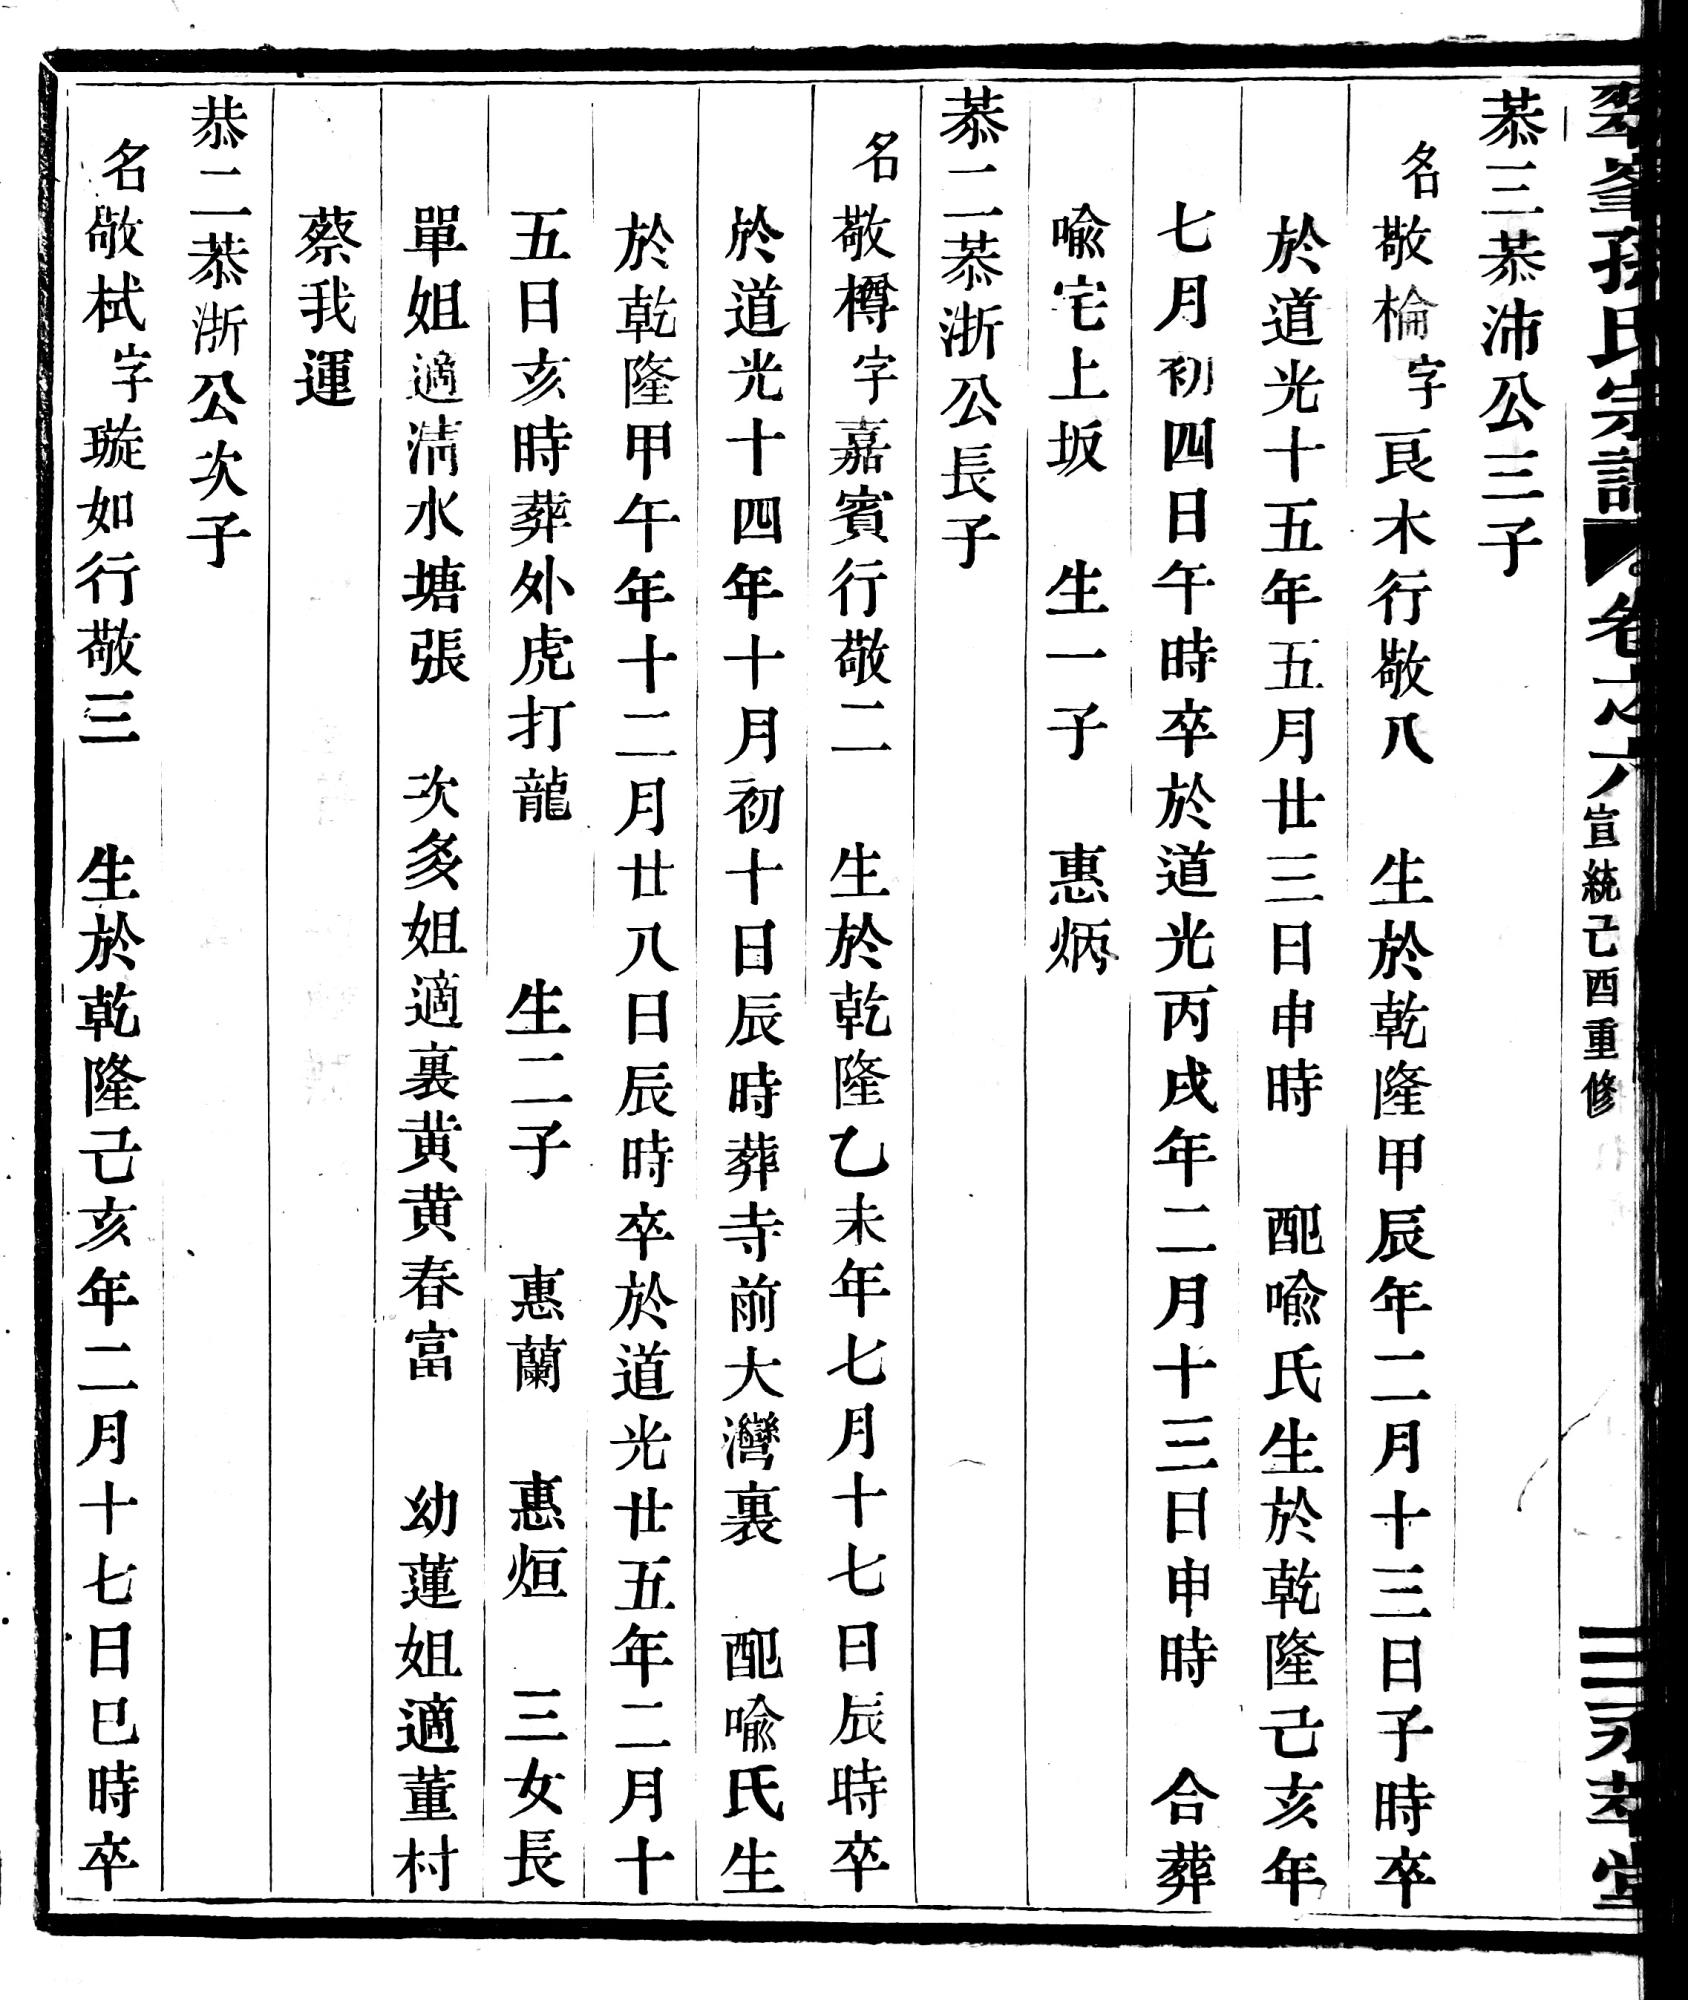 翠峯孫氏宗譜 卷之六 宣統己酉重修 三 永萃堂
恭三恭沛公三子
名敬棆字良木行敬八 生於乾隆甲辰年二月十三日子時卒
於道光十五年五月廿三日申時 配喩氏生於乾隆己亥年
七月初四日午時卒於道光丙戌年二月十三日申時 合葬
喩宅上坂 生一子 惠炳
恭二恭浙公長子
名敬樽字嘉賓行敬二 生於乾隆乙未年七月十七日辰時卒
於道光十四年十月初十日辰時葬寺前大灣裏 配喩氏生
於乾隆甲午年十二月廿八日辰時卒於道光廿五年二月十
五日亥時葬外虎打龍 生二子 惠蘭 惠烜 三女長
單姐適清水塘張 次多姐適裏黄黄春富 幼蓮姐適董村
蔡我運
恭二恭浙公次子
名敬栻字璇如行敬三 生於乾隆己亥年二月十七日巳時卒